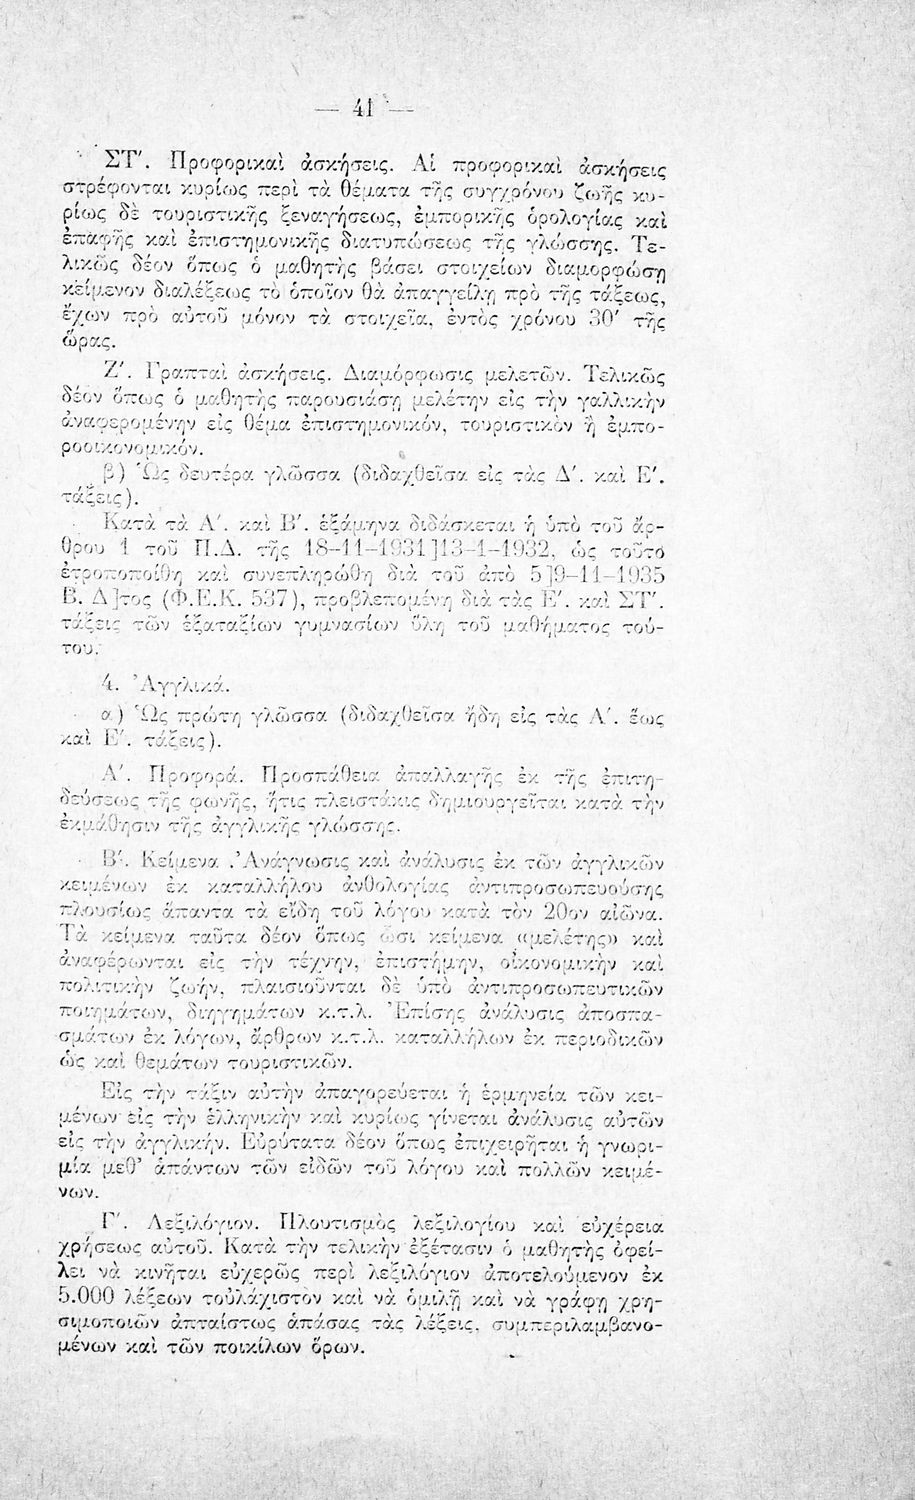 — 41 —
ΣΤ'. Προφορικαὶ ἀσκήσεις. Αἱ προφορικαὶ ἀσκήσεις
στρέφονται κυρίως περὶ τὰ θέματα τῆς συγχρόνου ζωῆς κυ-
ρίως δὲ τουριστικῆς ξεναγήσεως, ἐμπορικῆς ὁρολογίας καὶ
ἐπαφῆς καὶ ἐπιστημονικῆς διατυπώσεως τῆς γλώσσης. Τε-
λικῶς δέον ὅπως ὁ μαθητὴς βάσει στοιχείων διαμορφώσῃ
κείμενον διαλέξεως τὸ ὁποῖον θὰ ἀπαγγείλῃ πρὸ τῆς τάξεως,
ἔχων πρὸ αὐτοῦ μόνον τὰ στοιχεῖα, ἐντὸς χρόνου 30' τῆς
ὥρας.
Ζ'. Γραπταὶ ἀσκήσεις. Διαμόρφωσις μελετῶν. Τελικῶς
δέον ὅπως ὁ μαθητὴς παρουσιάσῃ μελέτην εἰς τὴν γαλλικὴν
ἀναφερομένην εἰς θέμα ἐπιστημονικόν, τουριστικὸν ἢ ἐμπο-
ροοικονομικόν.
β) Ὡς δευτέρα γλῶσσα (διδαχθεῖσα εἰς τὰς Δ'. καὶ Ε'.
τάξεις).
Κατὰ τὰ Α'. καὶ Β'. ἑξάμηνα διδάσκεται ἡ ὑπὸ τοῦ ἄρ-
θρου 1 τοῦ Π.Δ. τῆς 18-11-1931]13-1-1932, ὡς τοῦτο
ἐτροποποίθη καὶ συνεπληρώθη διὰ τοῦ ἀπὸ 5]9-11-1935
Β. Δ]τος (Φ.Ε.Κ. 537), προβλεπομένη διὰ τὰς Ε'. καὶ ΣΤ'.
τάξεις τῶν ἑξαταξίων γυμνασίων ὕλη τοῦ μαθήματος τού-
του.
4. Ἀγγλικά.
α) Ὡς πρώτη γλῶσσα (διδαχθεῖσα ἤδη εἰς τὰς Α'. ἕως
καὶ Ε'. τάξεις).
Α'. Προφορά. Προσπάθεια ἀπαλλαγῆς ἐκ τῆς ἐπιτη-
δεύσεως τῆς φωνῆς, ἥτις πλειστάκις δημιουργεῖται κατὰ τὴν
ἐκμάθησιν τῆς ἀγγλικῆς γλώσσης.
Β'. Κείμενα .Ἀνάγνωσις καὶ ἀνάλυσις ἐκ τῶν ἀγγλικῶν
κειμένων ἐκ καταλλήλου ἀνθολογίας ἀντιπροσωπευούσης
πλουσίως ἅπαντα τὰ εἴδη τοῦ λόγου κατὰ τὸν 20ον αἰῶνα.
Τὰ κείμενα ταῦτα δέον ὅπως ὦσι κείμενα «μελέτης» καὶ
ἀναφέρωνται εἰς τὴν τέχνην, ἐπιστήμην, οἰκονομικὴν καὶ
πολιτικὴν ζωήν, πλαισιοῦνται δὲ ὑπὸ ἀντιπροσωπευτικῶν
ποιημάτων, διηγημάτων κ.τ.λ. Ἐπίσης ἀνάλυσις ἀποσπα-
σμάτων ἐκ λόγων, ἄρθρων κ.τ.λ. καταλλήλων ἐκ περιοδικῶν
ὡς καὶ θεμάτων τουριστικῶν.
Εἰς τὴν τάξιν αὐτὴν ἀπαγορεύεται ἡ ἑρμηνεία τῶν κει-
μένων εἰς τὴν ἑλληνικὴν καὶ κυρίως γίνεται ἀνάλυσις αὐτῶν
εἰς τὴν ἀγγλικήν. Εὐρύτατα δέον ὅπως ἐπιχειρῆται ἡ γνωρι-
μία μεθ' ἁπάντων τῶν εἰδῶν τοῦ λόγου καὶ πολλῶν κειμέ-
νων.
Γ'. Λεξιλόγιον. Πλουτισμὸς λεξιλογίου καὶ εὐχέρεια
χρήσεως αὐτοῦ. Κατὰ τὴν τελικὴν ἐξέτασιν ὁ μαθητὴς ὀφεί-
λει νὰ κινῆται εὐχερῶς περὶ λεξιλόγιον ἀποτελούμενον ἐκ
5.000 λέξεων τοὐλάχιστον καὶ νὰ ὁμιλῇ καὶ νὰ γράφῃ χρη-
σιμοποιῶν ἀπταίστως ἁπάσας τὰς λέξεις, συμπεριλαμβανο-
μένων καὶ τῶν ποικίλων ὅρων.